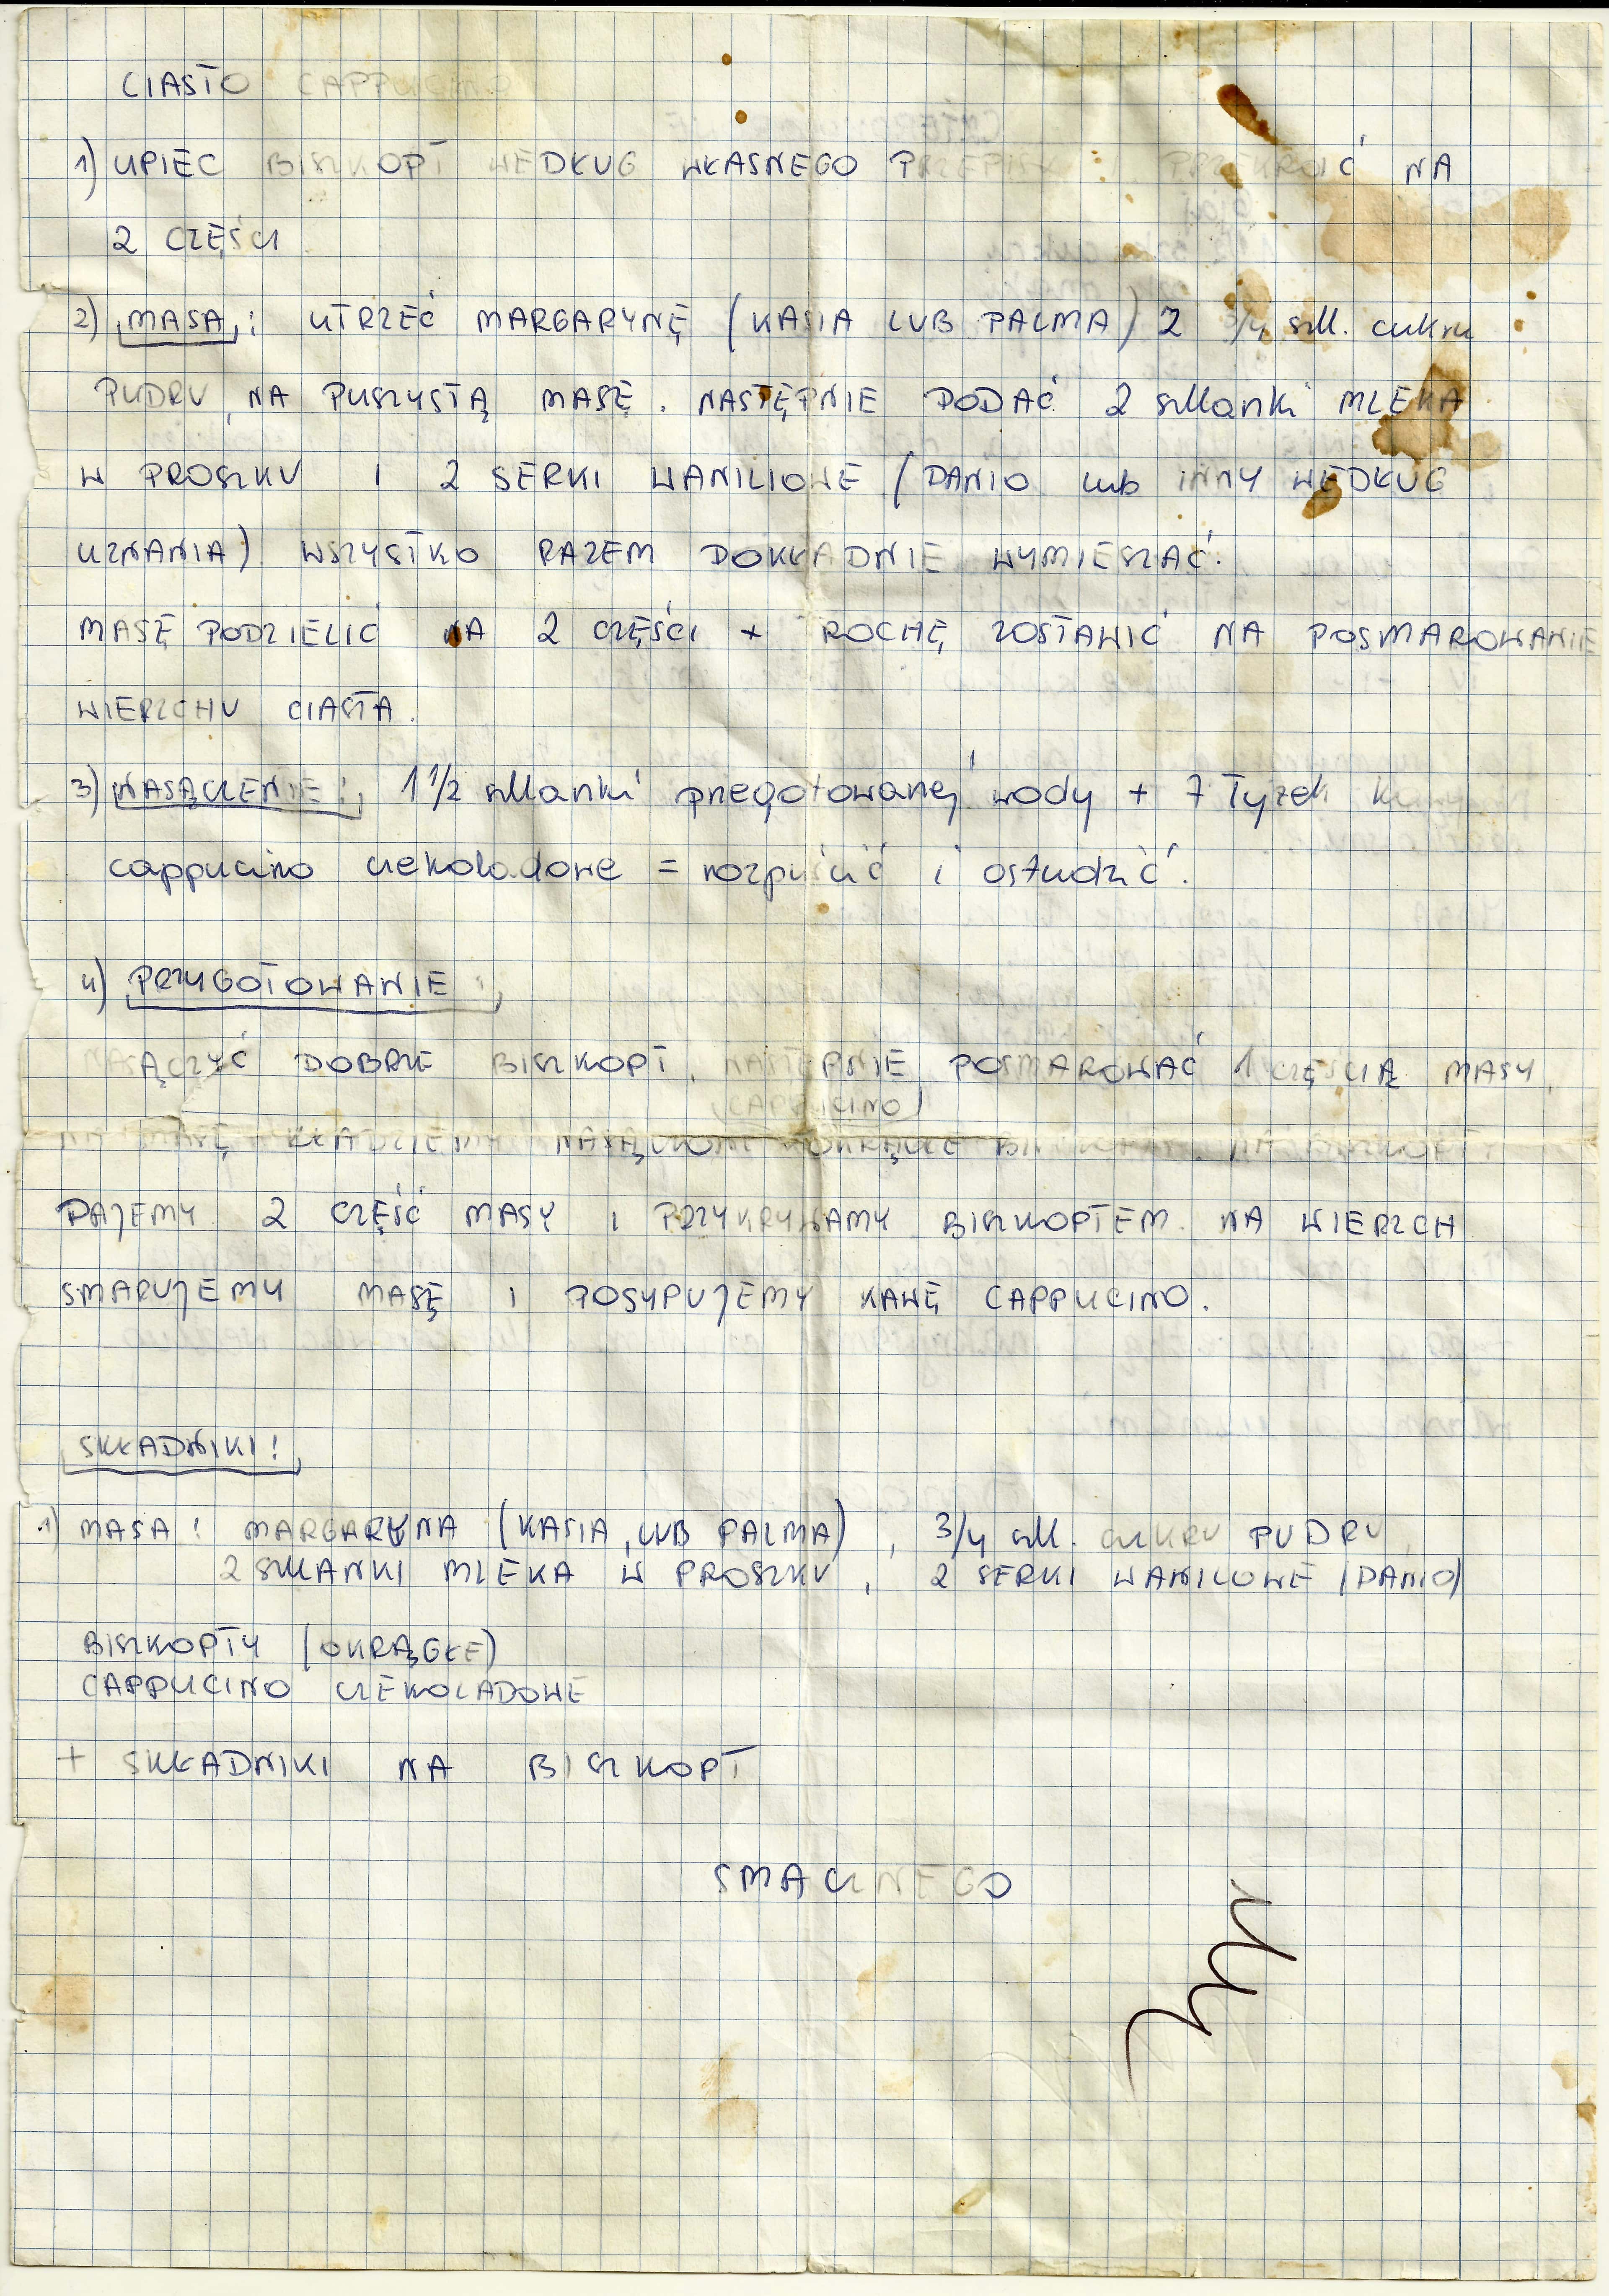 CIASTO CAPPUCINO
1) UPIEC BISZKOPT WEDŁUG WŁASNEGO PRZEPISU I PRZEKROIĆ NA
2 CZĘŚCI
2) MASA: UTRZEĆ MARGARYNĘ (KASIA LUB PALMA) Z 3/4 szkl. cukru
PUDRU, NA PUSZYSTĄ MASĘ. NASTĘPNIE DODAĆ 2 szklanki MLEKA
W PROSZKU I 2 SERKI WANILIOWE (DANIO lub INNY WEDŁUG
UZNANIA) WSZYSTKO RAZEM DOKŁADNIE WYMIESZAĆ.
MASĘ PODZIELIĆ NA 2 CZĘŚCI + TROCHĘ ZOSTAWIĆ NA POSMAROWANIE
WIERZCHU CIASTA.
3) NASĄCZENIE: 1 1/2 szklanki przegotowanej wody + 7 łyżek kawy
cappucino czekoladowe = rozpuścić i ostudzić.
4) PRZYGOTOWANIE:
NASĄCZYĆ DOBRZE BISZKOPT, NASTĘPNIE POSMAROWAĆ 1 CZĘŚCIĄ MASY,
(CAPPUCINO)
NA MASĘ KŁADZIEMY NASĄCZONE OKRĄGŁE BISZKOPTY. NA BISZKOPTY
DAJEMY 2 CZĘŚĆ MASY I PRZYKRYWAMY BISZKOPTEM. NA WIERZCH
SMARUJEMY MASĘ I POSYPUJEMY KAWĘ CAPPUCINO.
SKŁADNIKI:
1) MASA: MARGARYNA (KASIA, LUB PALMA), 3/4 szkl. CUKRU PUDRU,
2 SZKLANKI MLEKA W PROSZKU, 2 SERKI WANILOWE (DANIO)
BISZKOPTY (OKRĄGŁE)
CAPPUCINO CZEKOLADOWE
+ SKŁADNIKI NA BISZKOPT
SMACZNEGO